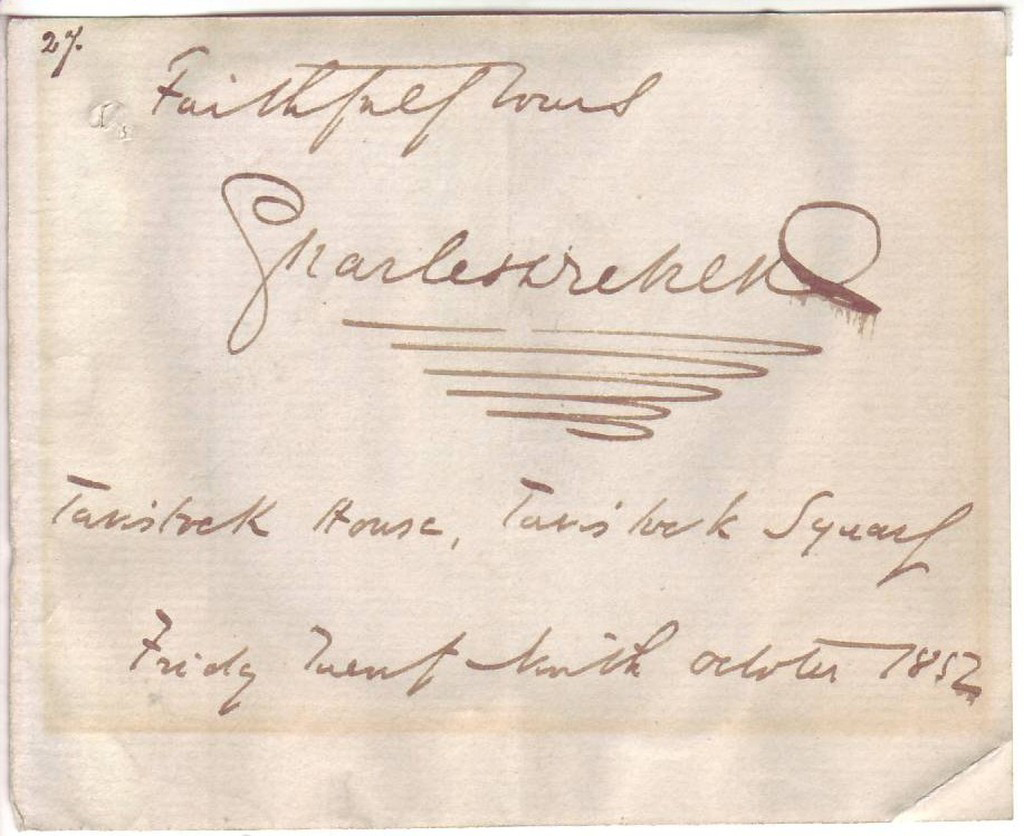 27.
Faithfully Yours
Charles Dickens
Tavistock House, Tavistock Square
Friday Twenty Ninth October 1852